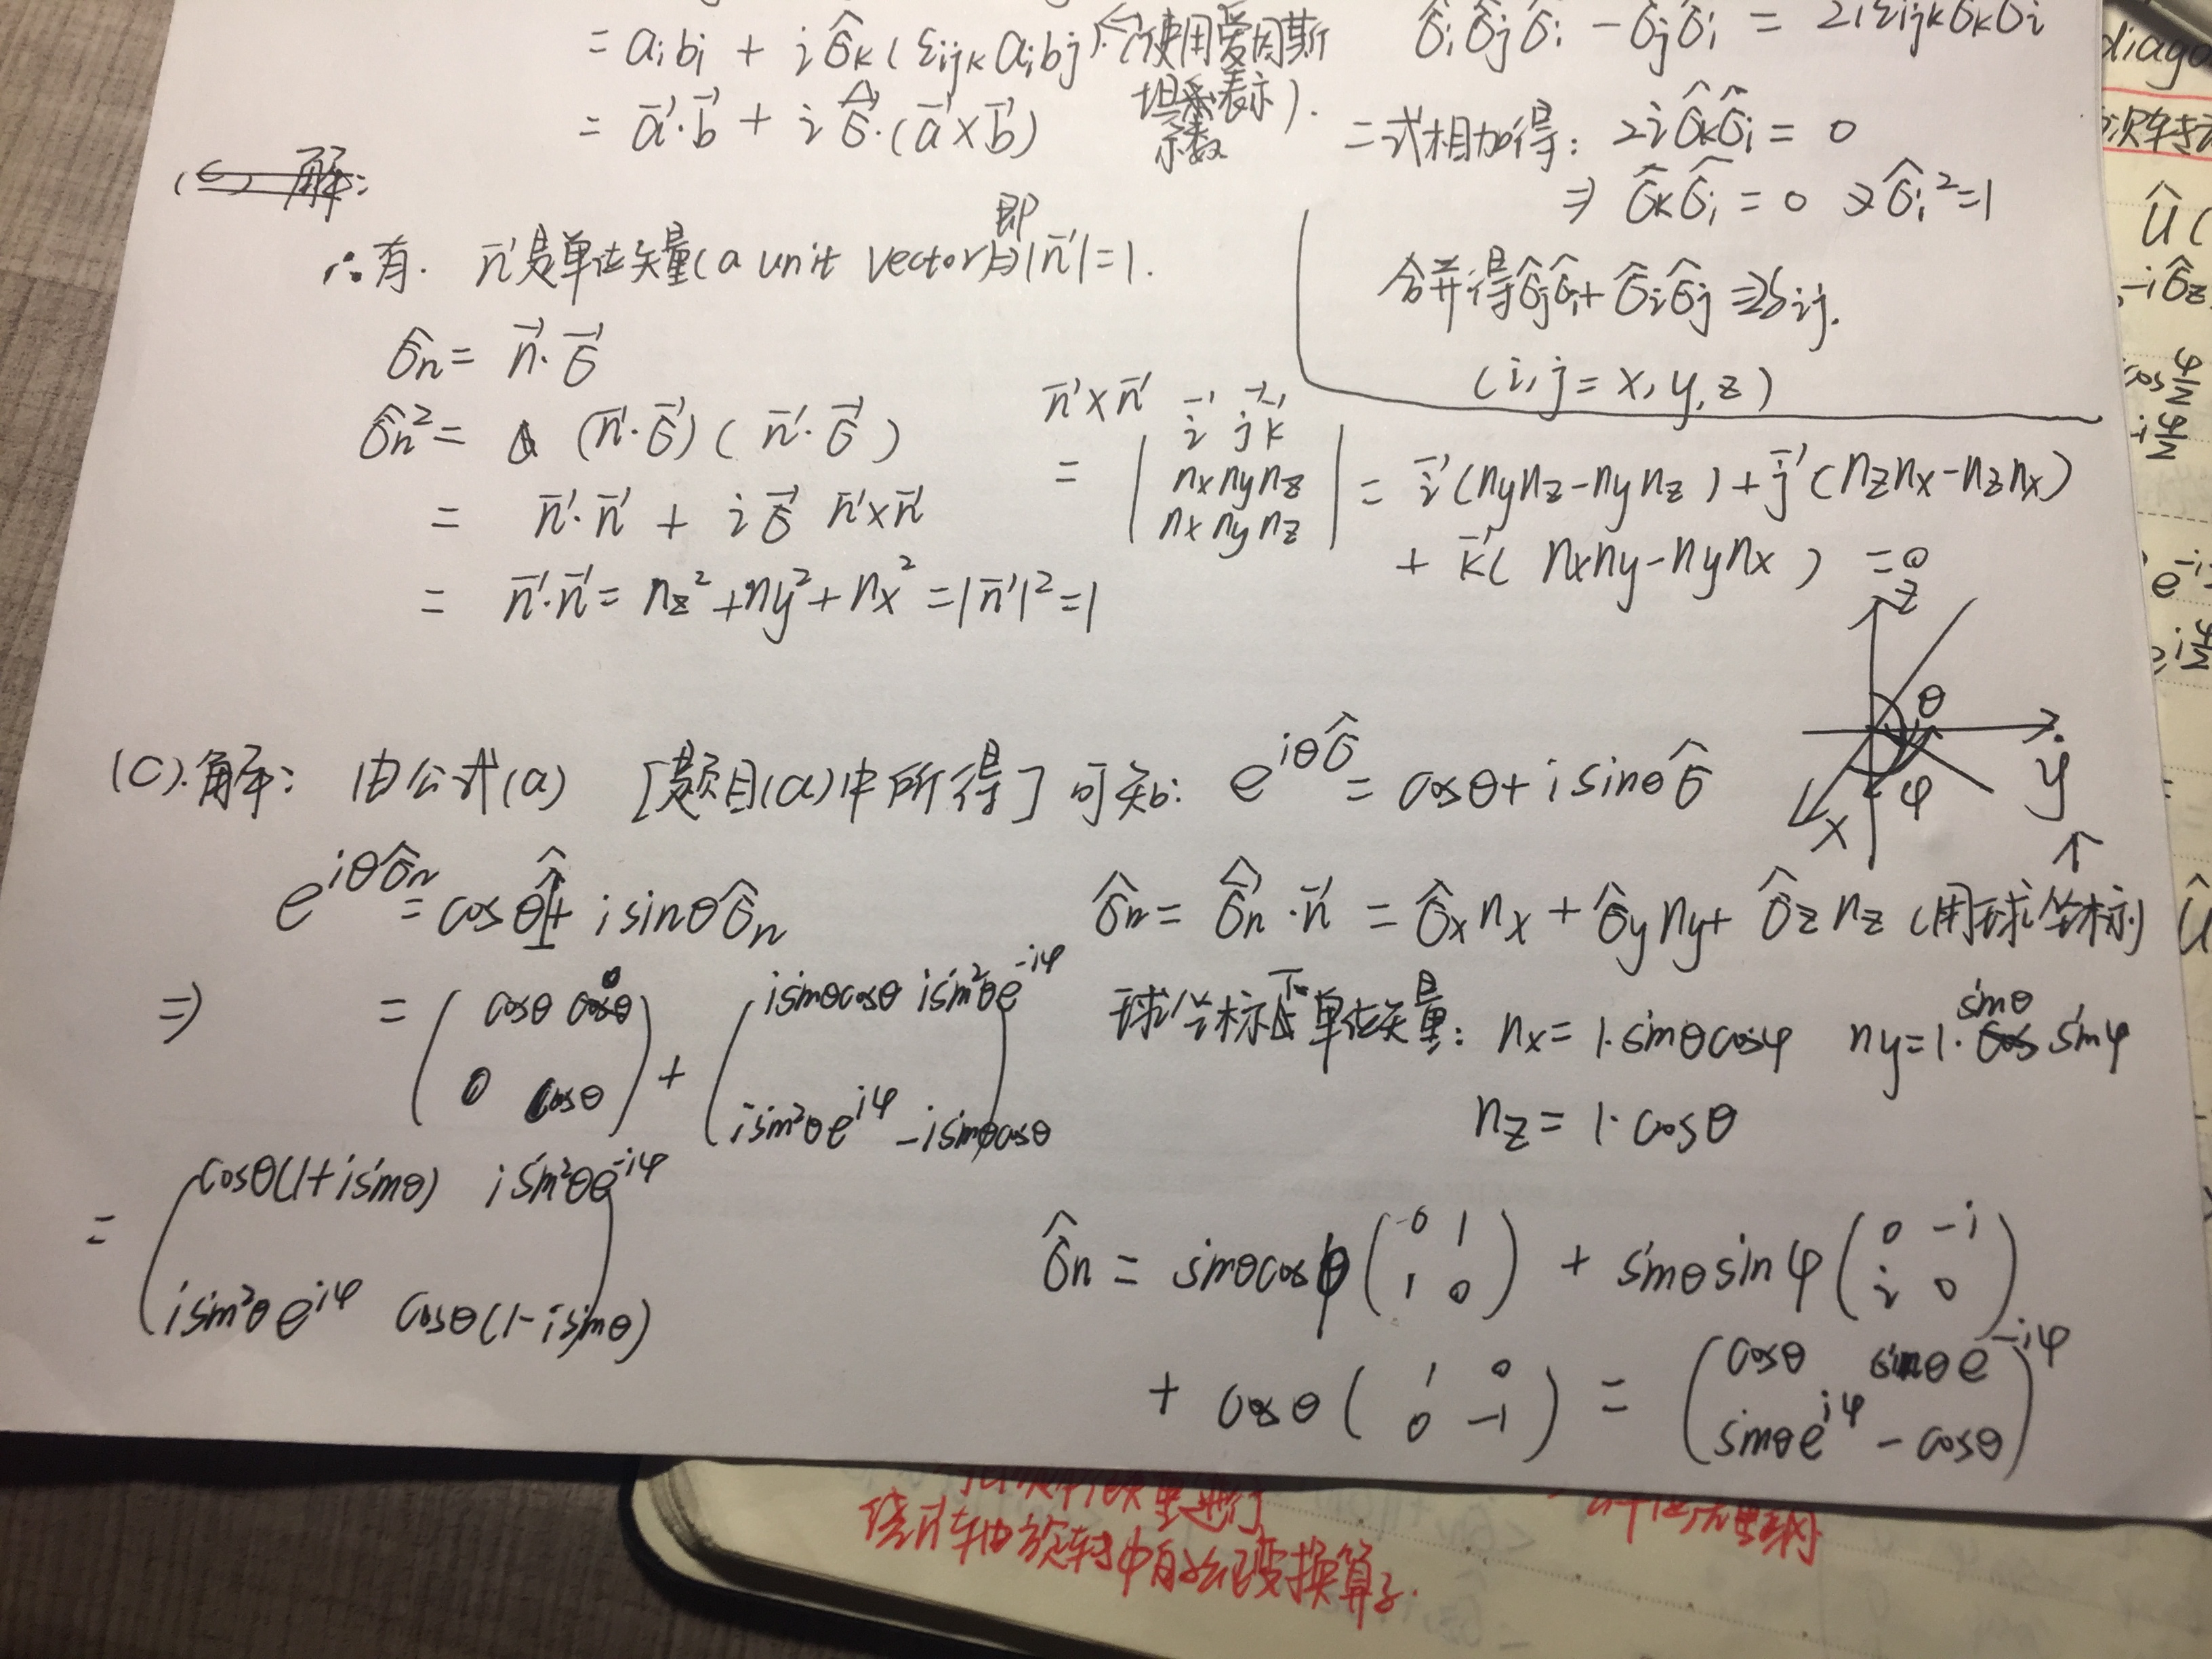 = aᵢbᵢ + i σ̂ₖ(εᵢⱼₖ aᵢbⱼ) ← (使用爱因斯坦求和表示).
= a⃗·b⃗ + i σ̂⃗·(a⃗×b⃗)
σ̂ᵢσ̂ⱼσ̂ᵢ - σ̂ⱼσ̂ᵢ = 2iεᵢⱼₖσ̂ₖσ̂ᵢ
二式相加得: 2iσ̂ₖσ̂ᵢ = 0
⇒ σ̂ₖσ̂ᵢ = 0 又σ̂ᵢ²=1
合并得σ̂ⱼσ̂ᵢ+σ̂ᵢσ̂ⱼ=2δᵢⱼ.
(i,j = x, y, z)
解:
∴有. n⃗是单位矢量(a unit vector)即|n⃗|=1.
σ̂n = n⃗·σ⃗
σ̂n² = (n⃗·σ⃗)(n⃗·σ⃗)
= n⃗·n⃗ + iσ⃗ n⃗×n⃗
= n⃗·n⃗ = nz²+ny²+nx² = |n⃗|²=1
n⃗×n⃗
= | i⃗ j⃗ k⃗
nx ny nz
nx ny nz | = i⃗(nynz-nynz)+j⃗(nznx-nznx)
+ k⃗(nxny-nynx) = 0
z
θ
y
φ
x
(c).解: 由公式(a) [题目(a)中所得] 可知: e^{iθσ̂} = cosθ+i sinθσ̂
e^{iθσ̂n} = cosθÎ+ i sinθσ̂n
⇒ = ( cosθ 0
0 cosθ ) + ( isinθcosθ isin²θe^{-iφ}
isin²θe^{iφ} -isinθcosθ )
= ( cosθ(1+isinθ) isin²θe^{-iφ}
isin²θe^{iφ} cosθ(1-isinθ) )
σ̂n = σ̂⃗n·n⃗ = σ̂xnx + σ̂yny + σ̂znz (用球坐标)
球坐标下单位矢量: nx = 1·sinθcosφ ny=1·sinθ sinφ
nz = 1·cosθ
σ̂n = sinθcosφ ( 0 1
1 0 ) + sinθsinφ ( 0 -i
i 0 )
+ cosθ ( 1 0
0 -1 ) = ( cosθ sinθe^{-iφ}
sinθe^{iφ} -cosθ )
Û(
-iσ̂z
绕n轴旋转
变换算子.